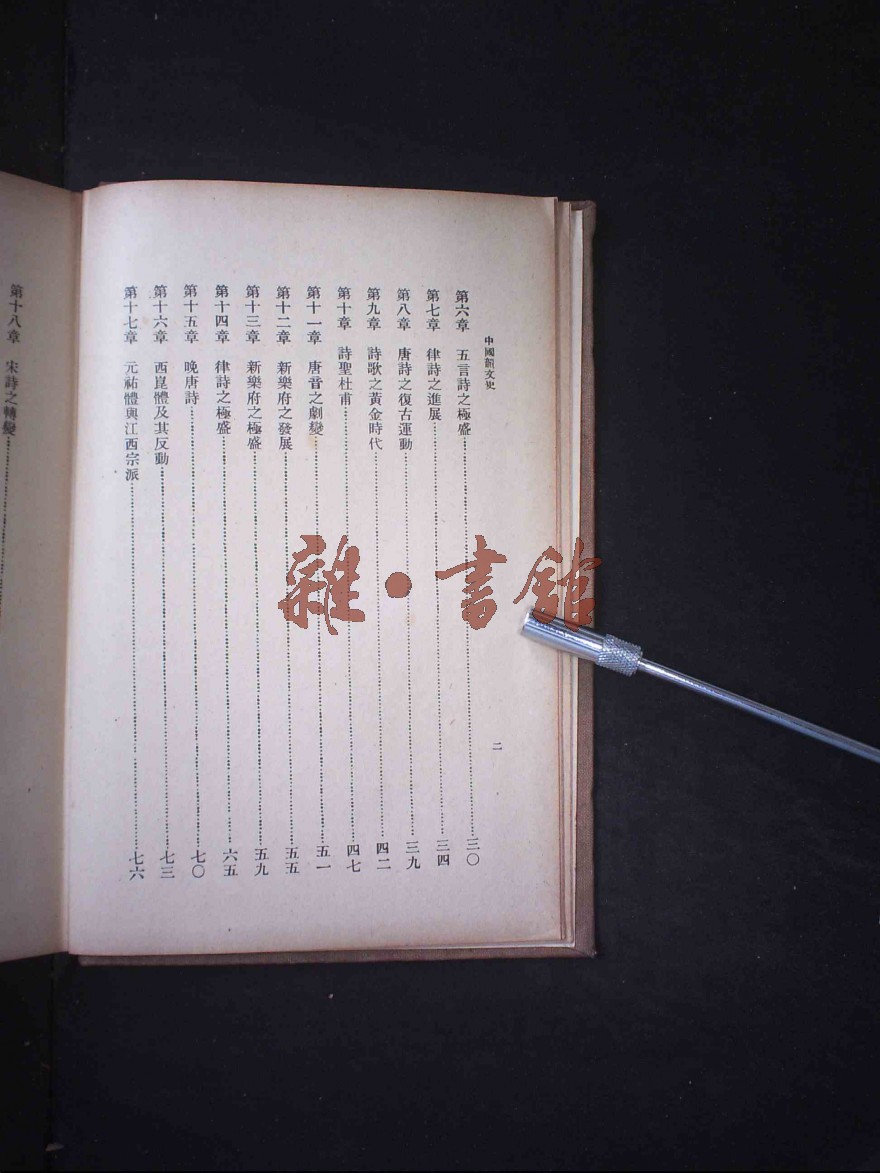 中國韻文史
二
第六章 五言詩之極盛 三〇
第七章 律詩之進展 三四
第八章 唐詩之復古運動 三九
第九章 詩歌之黃金時代 四二
第十章 詩聖杜甫 四七
第十一章 唐音之劇變 五一
第十二章 新樂府之發展 五五
第十三章 新樂府之極盛 五九
第十四章 律詩之極盛 六五
第十五章 晚唐詩 七〇
第十六章 西崑體及其反動 七三
第十七章 元祐體與江西宗派 七六
第十八章 宋詩之轉變
雜·書館